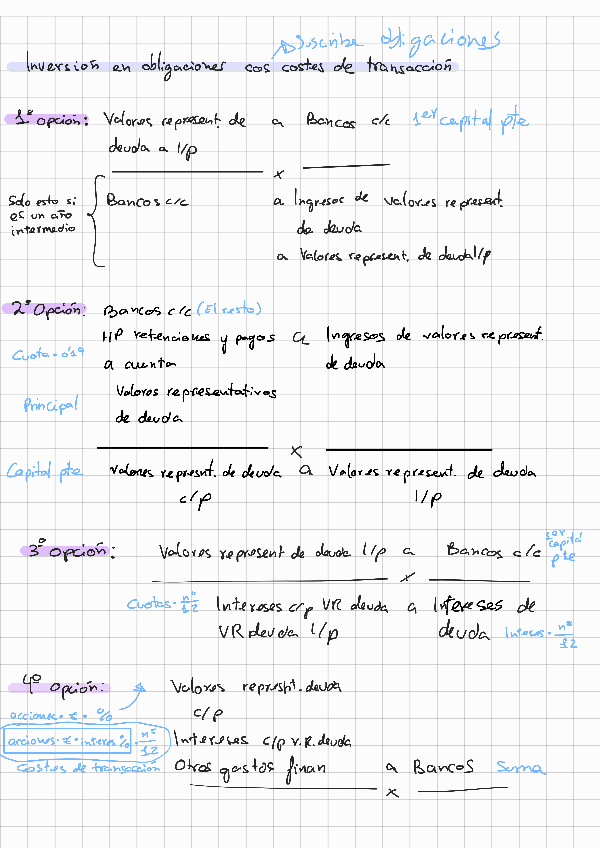 suscribe obligaciones
Inversión en obligaciones cos costes de transacción
1ª opción: Valores represent. de a Bancos c/c 1er capital pte
deuda a l/p
x
Solo esto si Bancos c/c a Ingresos de valores represent.
es un año de deuda
intermedio a Valores represent. de deuda l/p
2ª Opción: Bancos c/c (El resto)
HP retenciones y pagos a Ingresos de valores represent.
Cuota · 0'19 a cuenta de deuda
Principal Valores representativos
de deuda
x
Capital pte Valores represnt. de deuda a Valores represent. de deuda
c/p l/p
3ª opción: Valores represent de deuda l/p a Bancos c/c 1er capital pte
x
Cuotas · nº/12 Intereses c/p VR deuda a Intereses de
VR deuda l/p deuda Interes · nº/12
4ª opción: Valores represnt. deuda
acciones · € · % c/p
acciones · € · interes % · nº/12 Intereses c/p v.R. deuda
Costes de transacción Otros gastos finan a Bancos Suma
x